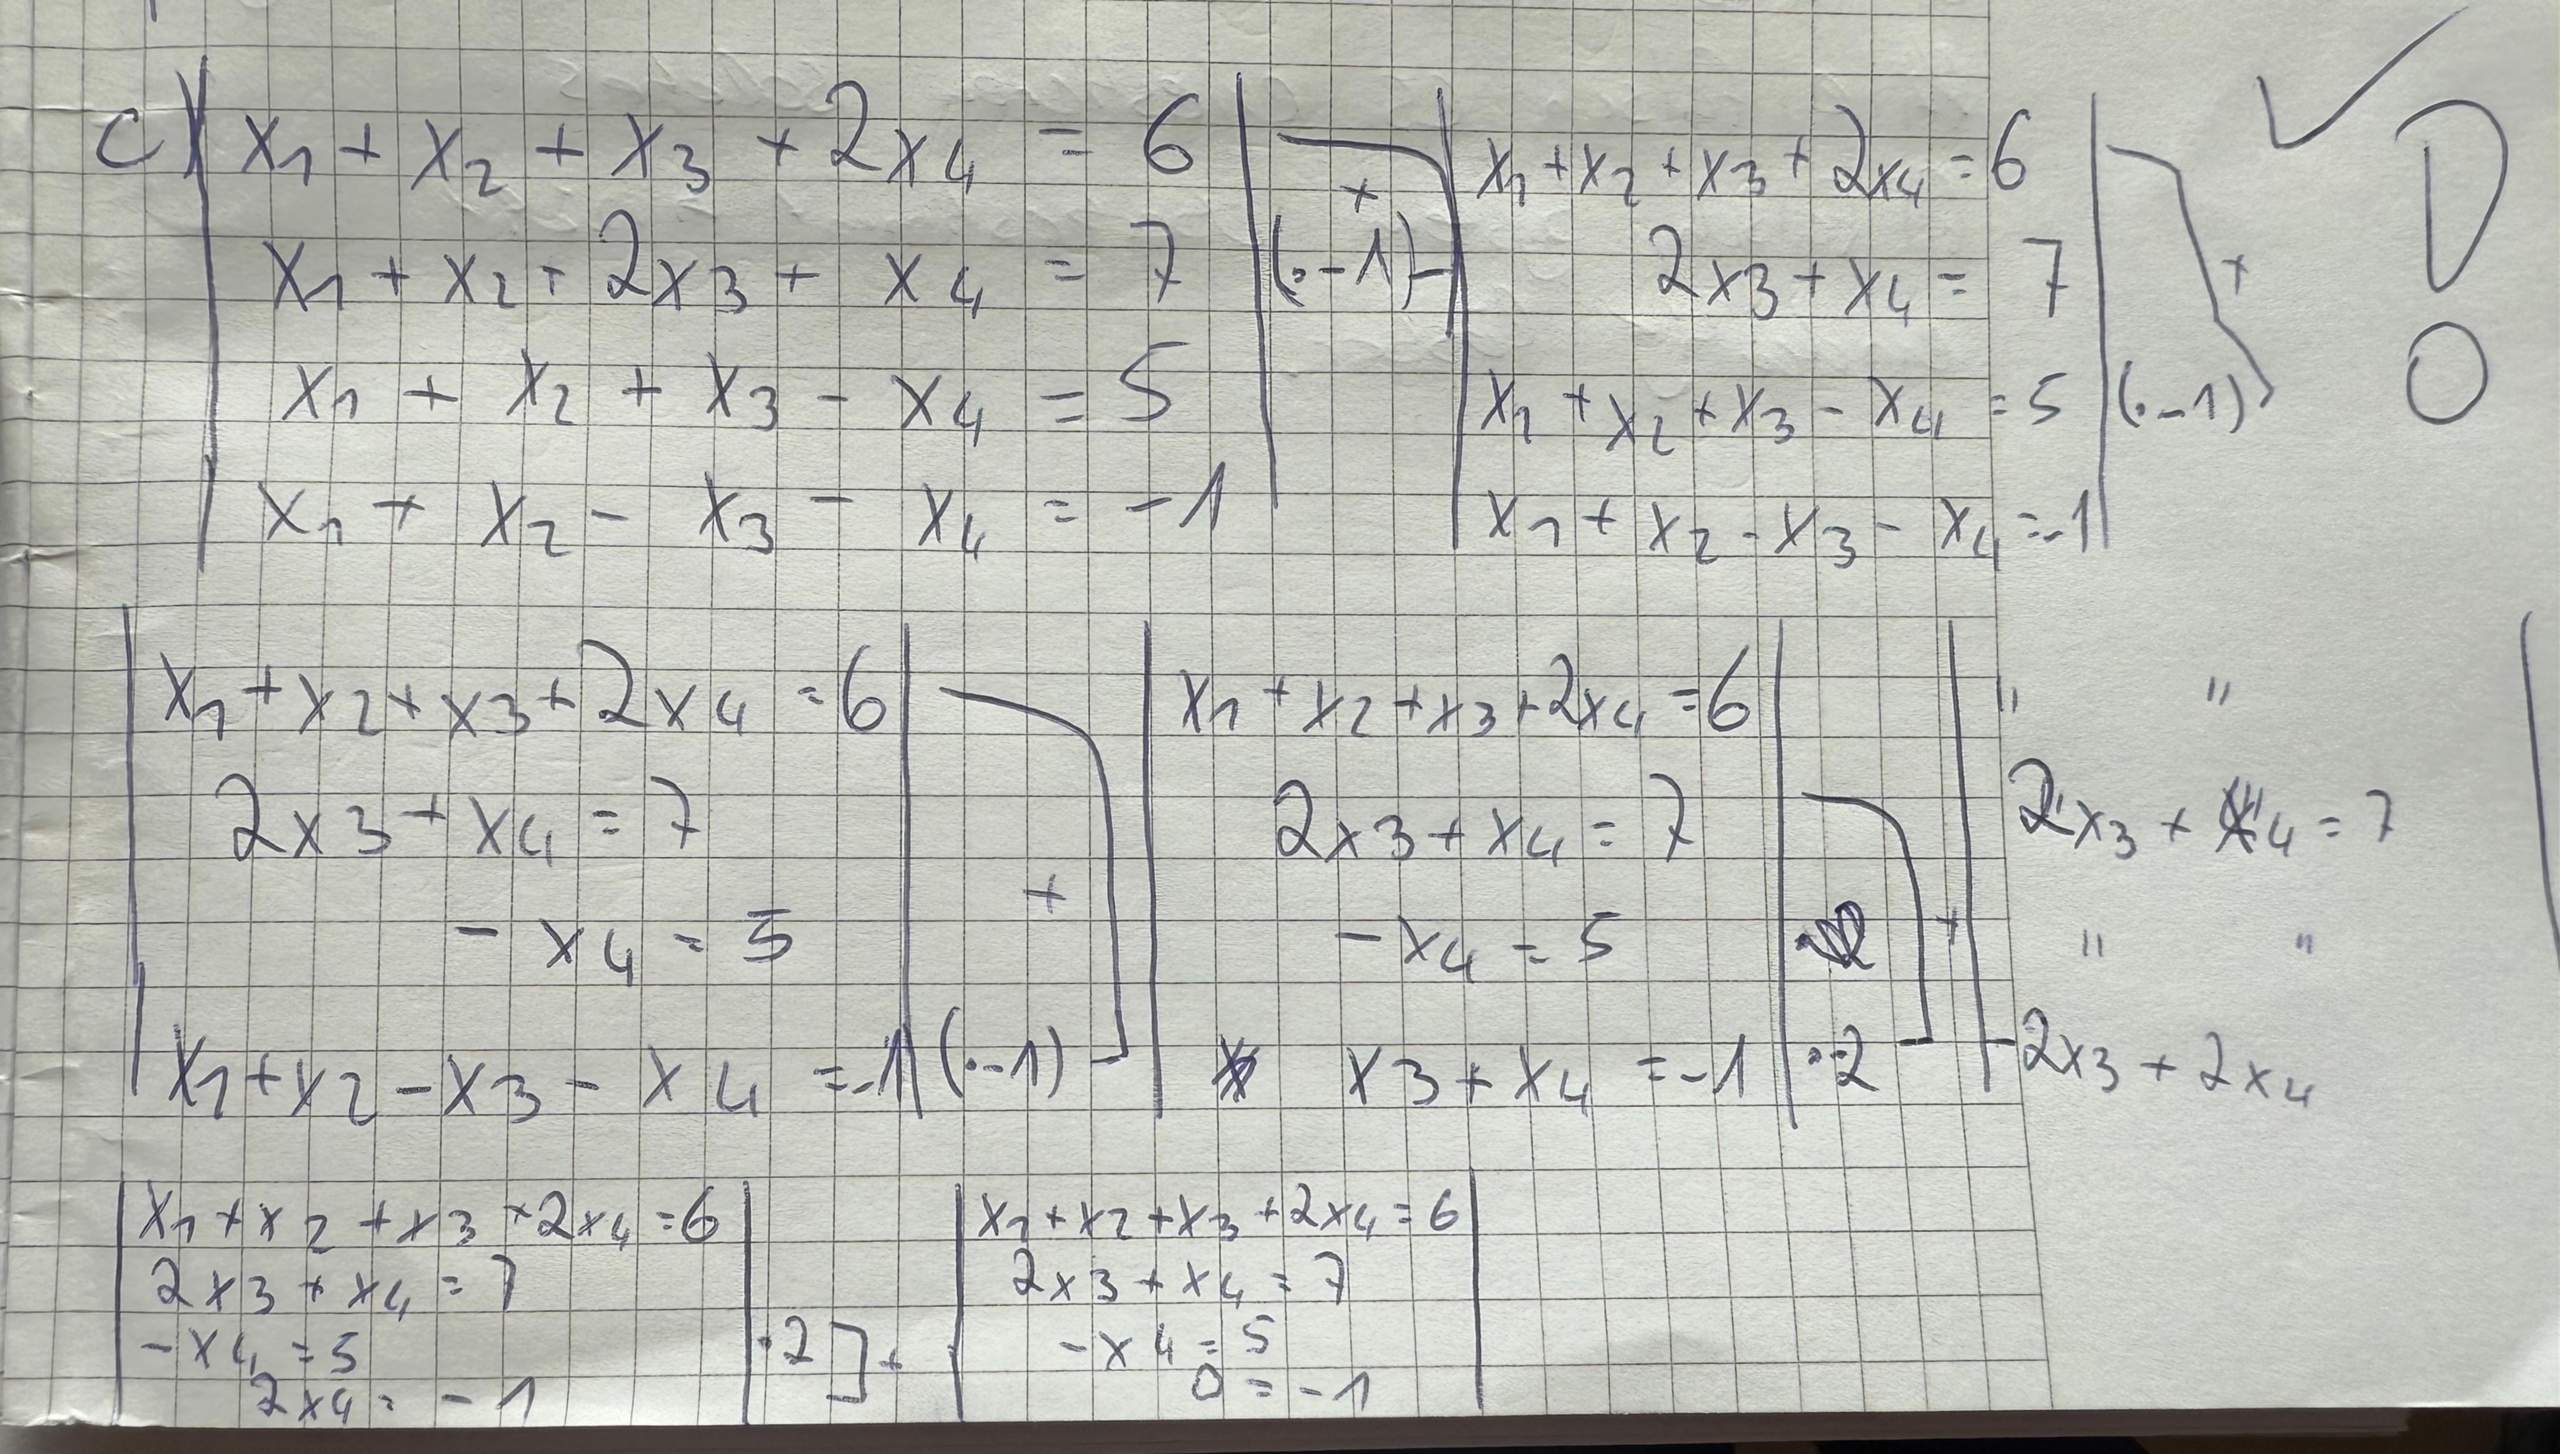 c) x1 + x2 + x3 + 2x4 = 6
x1 + x2 + 2x3 + x4 = 7 (·-1)
x1 + x2 + x3 - x4 = 5
x1 + x2 - x3 - x4 = -1
+
x1 + x2 + x3 + 2x4 = 6
2x3 + x4 = 7
x1 + x2 + x3 - x4 = 5 (·-1)
x1 + x2 - x3 - x4 = -1
+
✓ !
x1 + x2 + x3 + 2x4 = 6
2x3 + x4 = 7
- x4 = 5
x1 + x2 - x3 - x4 = -1 (·-1)
+
x1 + x2 + x3 + 2x4 = 6
2x3 + x4 = 7
- x4 = 5
x3 + x4 = -1 ·-2
+
" "
2x3 + x4 = 7
" "
-2x3 + 2x4
x1 + x2 + x3 + 2x4 = 6
2x3 + x4 = 7
- x4 = 5 ·2 +
2x4 = -1
x1 + x2 + x3 + 2x4 = 6
2x3 + x4 = 7
- x4 = 5
0 = -1